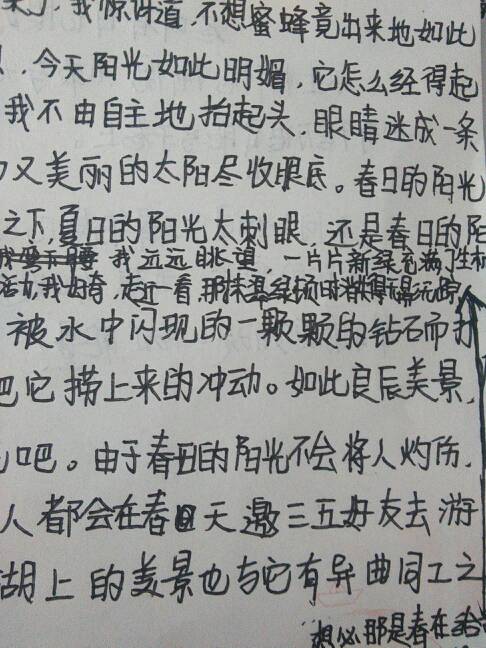 来了，我惊讶道，不想蜜蜂竟出来地如此
，今天阳光如此明媚，它怎么经得起
我不由自主地抬起头，眼睛迷成一条
又美丽的太阳尽收眼底。春日的阳光
之下，夏日的阳光太刺眼，还是春日的阳
我远远眺望，一片片新绿充满了生机
活力，我好奇，走近一看，那抹绿顿时消得无踪
被水中闪现的一颗颗的钻石而打
把它捞上来的冲动。如此良辰美景，
吧。由于春日的阳光不会将人灼伤，
人都会在春天邀三五好友去游
湖上的美景也与它有异曲同工之
想必那是春在给